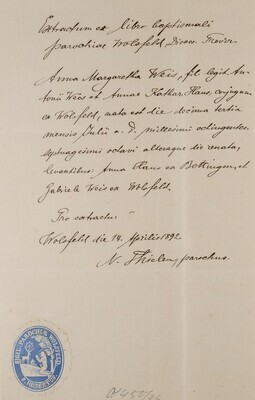 Extractum ex libro baptismali
parochiae Wolsfeld, Dioec. Trevir.
Anna Margaretha Weis, fil. legit. An-
tonii Weis et Annae Kathar. Haus, conjugum
ex Wolsfeld, nata est die decima tertia
mensis Julii a. d. millesimi octingentes.
septuagesimi octavi alteraque die renata,
levantibus: Anna Haus ex Bettingen, et
Gabriele Weis ex Wolsfeld.
Pro extractu:
Wolsfeld die 14. Aprilis 1892
N. Thielen, parochus.